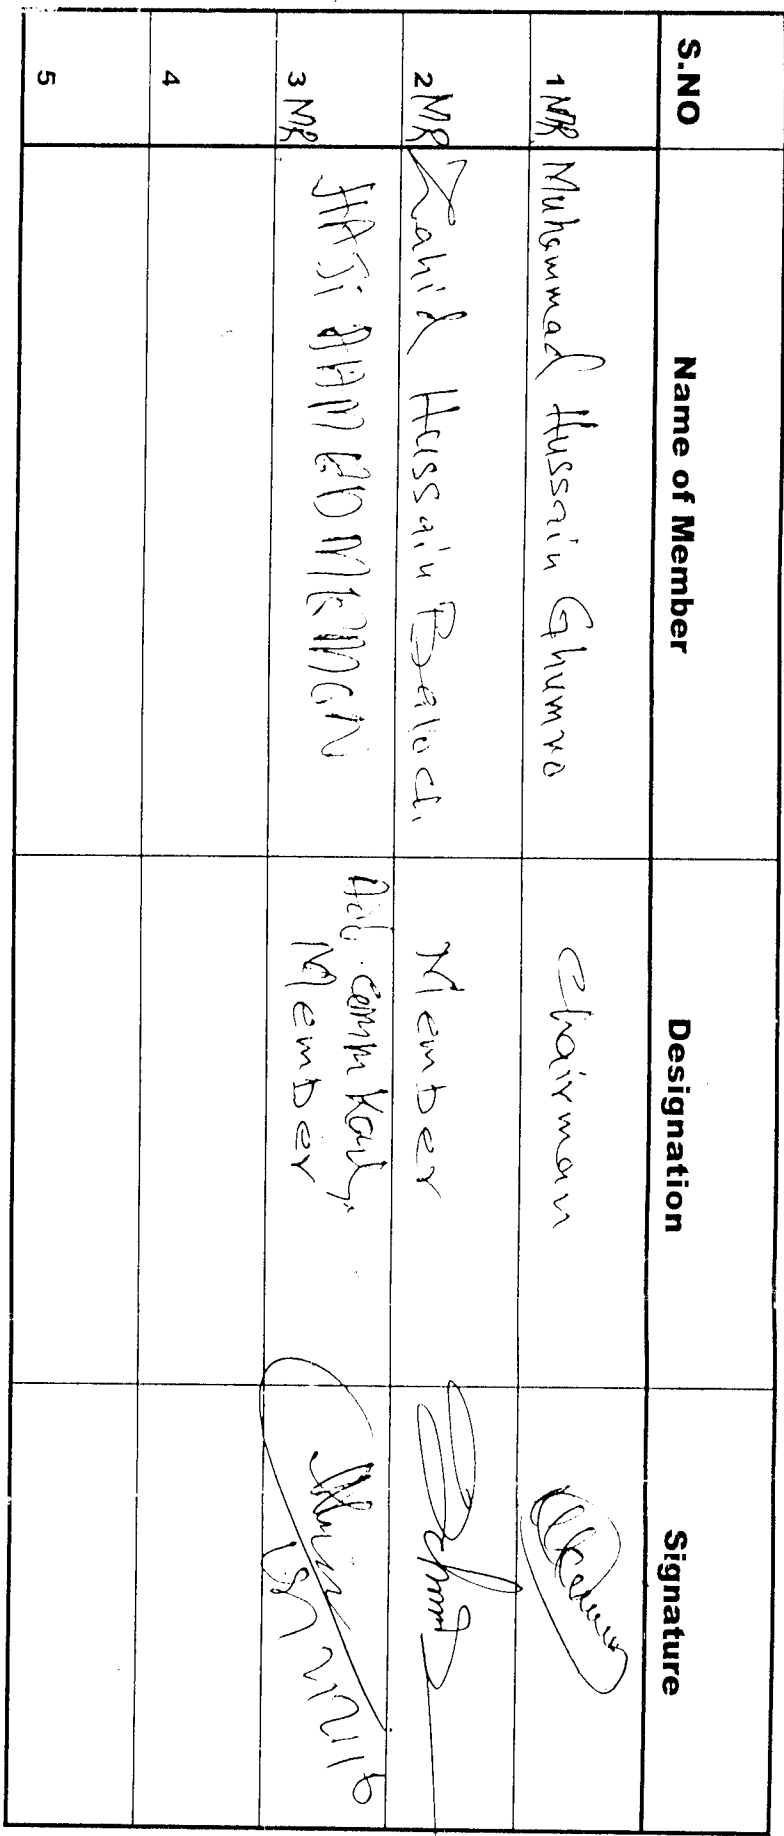 S.NO Name of Member Designation Signature
1 MR. Muhammad Hussain Ghumro Chairman
2 MR Zahid Hussain Baloch Member
3 MR HAJI AHMED MEMON Member
4
5